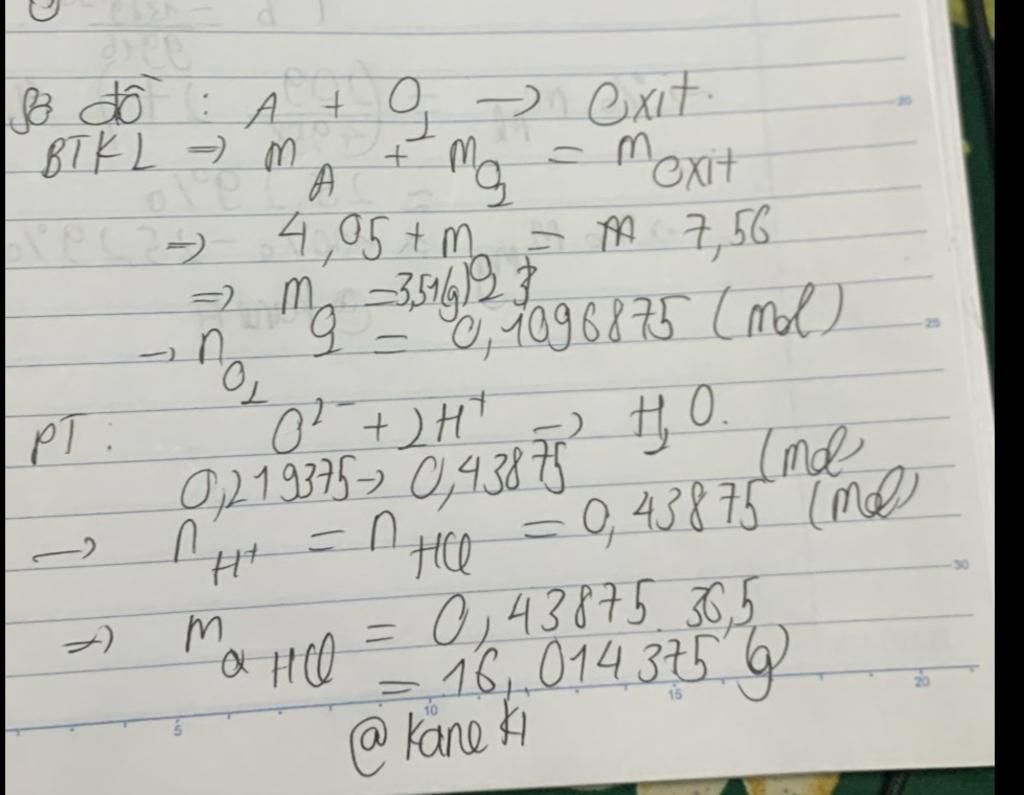 Sơ đồ : A + O2 → Oxit.
BTKL => m A + m O2 = m Oxit
=> 4,05 + m = 7,56
=> m O2 = 3,51(g)
→ n O2 = 0,1096875 (mol)
PT: O²⁻ + 2H⁺ → H2O.
0,219375 → 0,43875 (mol)
→ n H⁺ = n HCl = 0,43875 (mol)
=> m HCl = 0,43875. 36,5
= 16,014375 (g)
@Kaneki
20
25
30
5 10 15 20